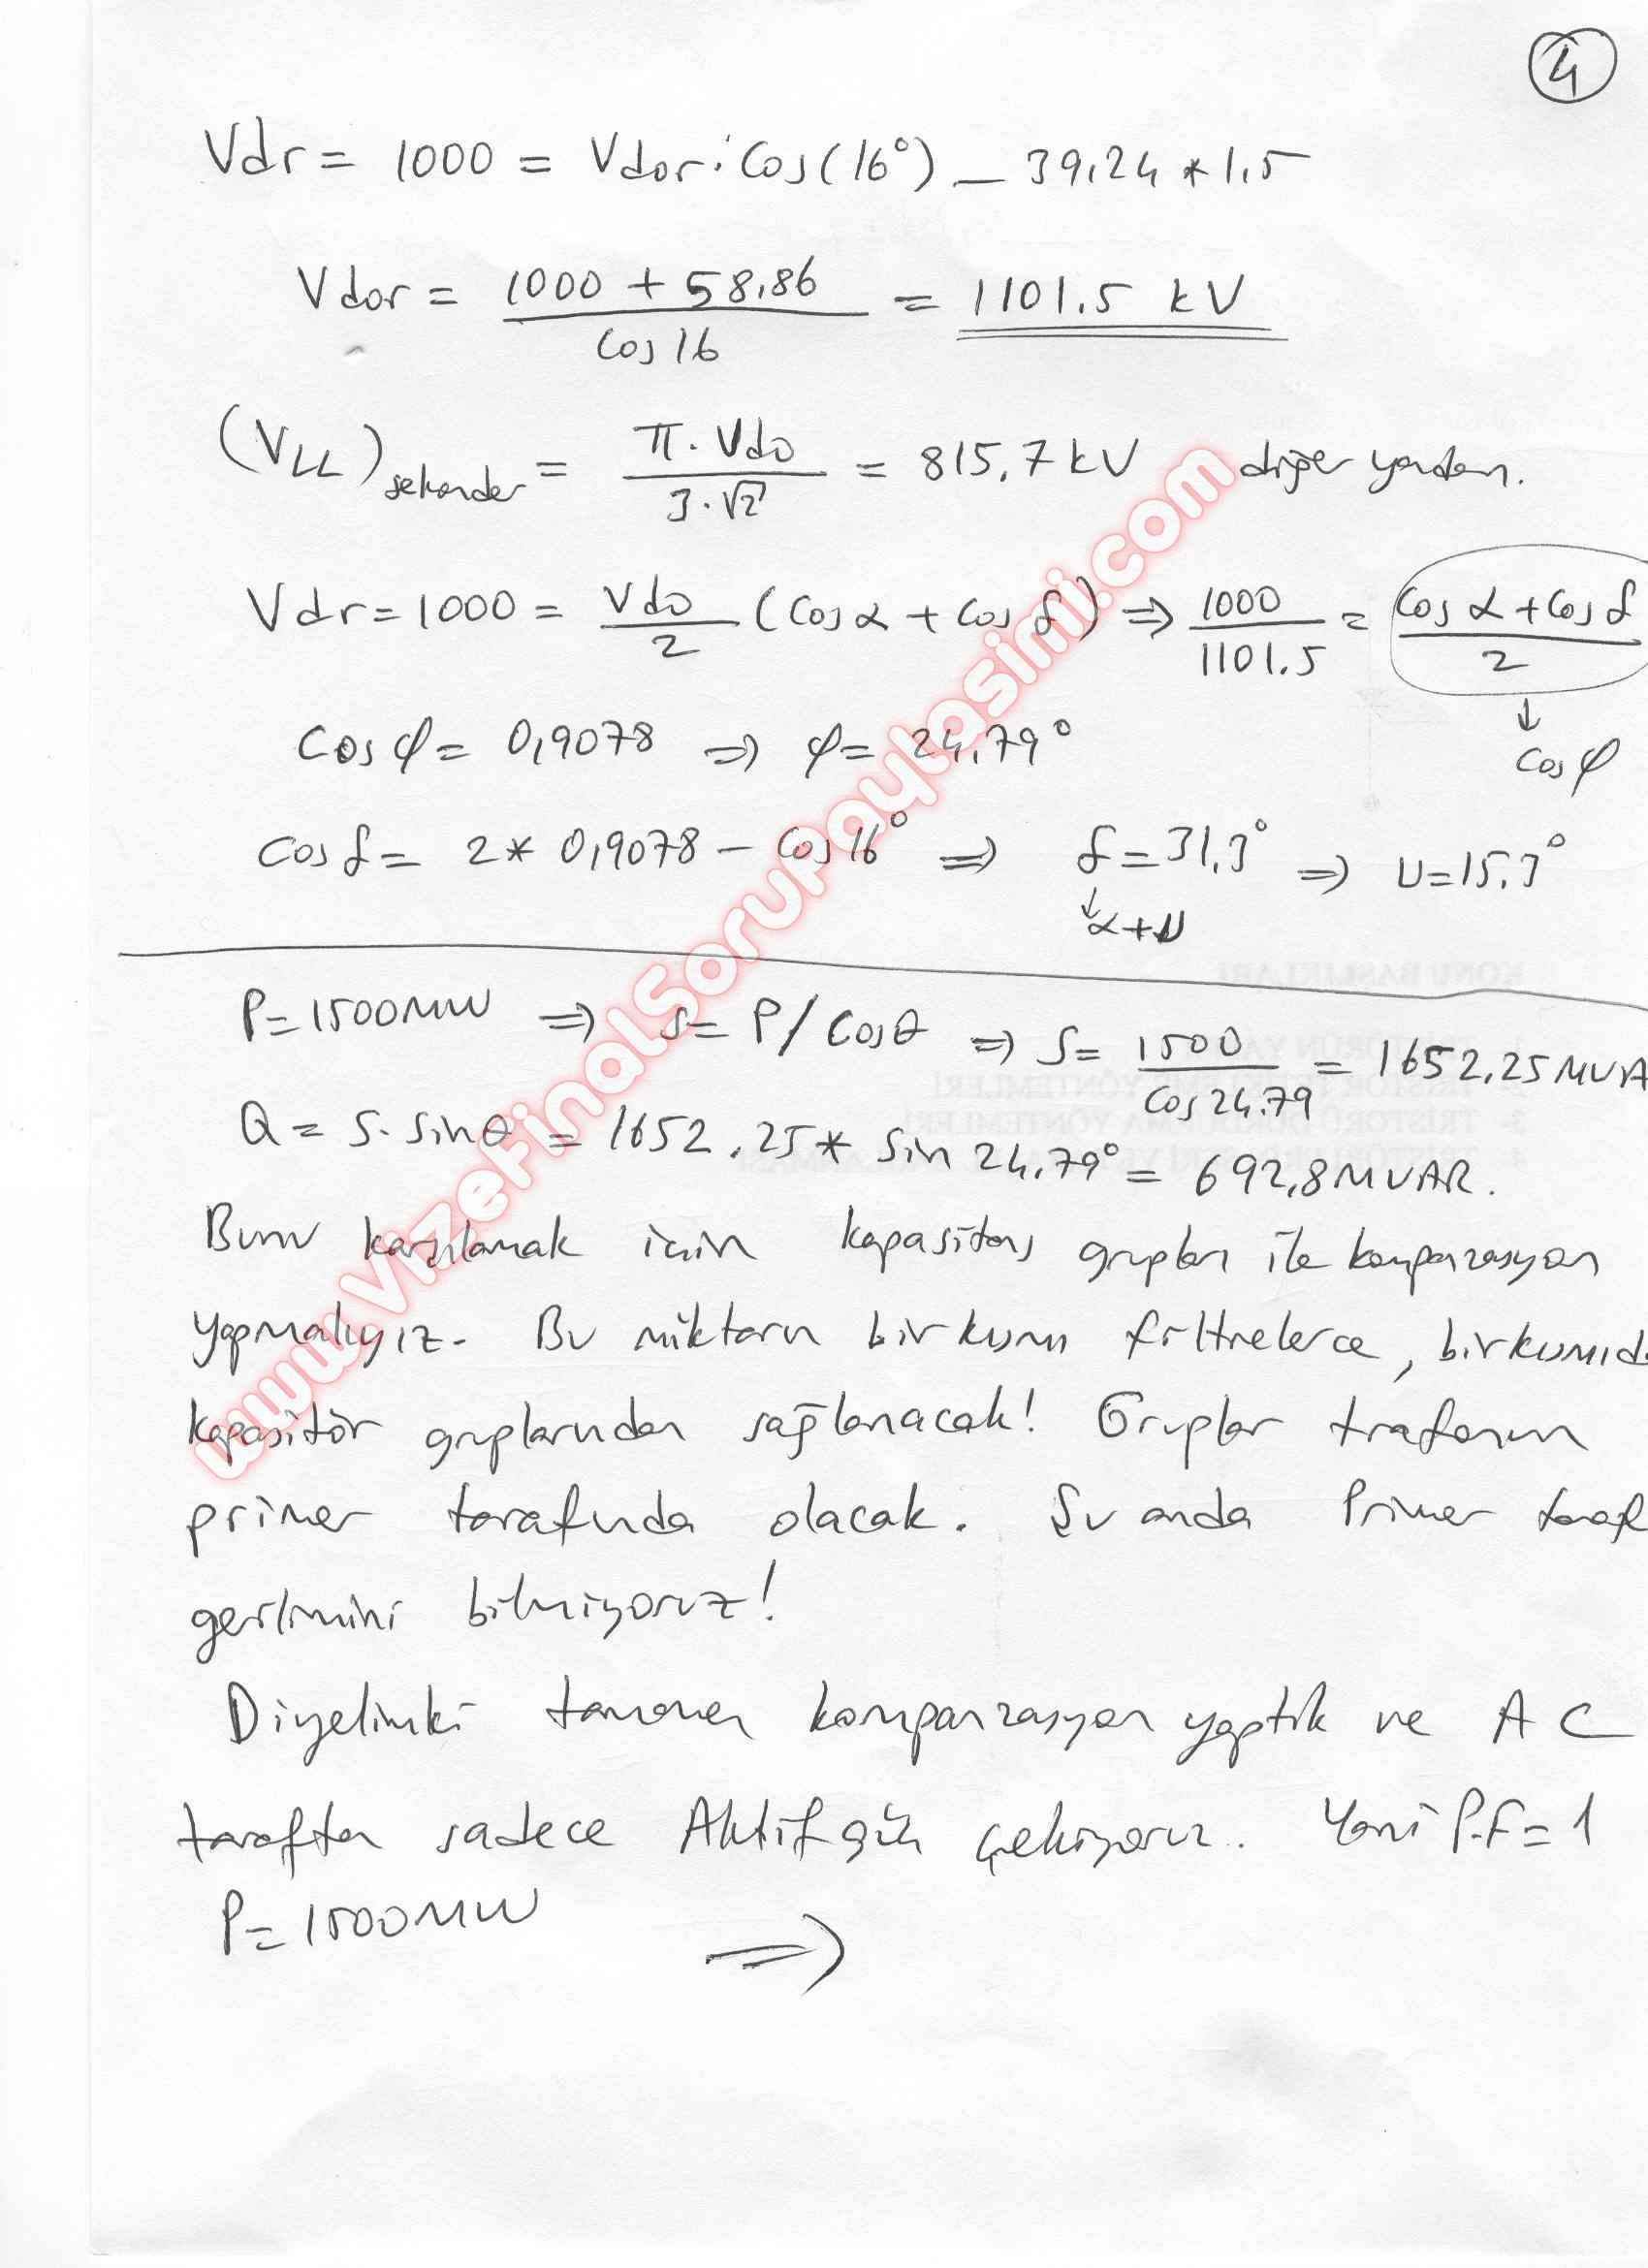 4
Vdr = 1000 = Vdor . Cos(16°) - 39,24 * 1,5
Vdor = (1000 + 58,86) / Cos 16 = 1101.5 kV
(VLL)sekonder = π . Vdo / 3.√2 = 815,7 kV diğer yandan.
Vdr = 1000 = Vdo/2 (Cos α + Cos δ) ⇒ 1000/1101.5 = (Cos α + Cos δ)/2
↓
Cos φ
Cos φ = 0,9078 ⇒ φ = 24,79°
Cos δ = 2 * 0,9078 - Cos 16° ⇒ δ = 31,3° ⇒ U = 15,3°
↓
α + U
P = 1500MW ⇒ S = P / Cosθ ⇒ S = 1500 / Cos 24.79 = 1652,25 MVA
Q = S. Sinθ = 1652,25 * Sin 24,79° = 692,8 MVAR.
Bunu karşılamak için kapasitans grupları ile kompanzasyon
yapmalıyız. Bu miktarın bir kısmı filtrelerce, bir kısmıda
kapasitör gruplarından sağlanacak! Gruplar trafonun
primer tarafında olacak. Şu anda Primer taraf
gerilimini bilmiyoruz!
Diyelimki tamamen kompanzasyon yaptık ve AC
taraftan sadece Aktif güç çekiyoruz. Yani P.F = 1
P = 1500MW ⇒
www.VizeFinalSoruPaylasimi.com
KONU BAŞLIKLARI